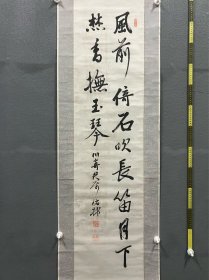 風前倚石吹長笛月下
焚香撫玉琴